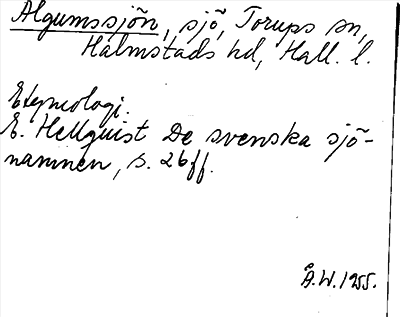 Algumssjön, sjö, Torups sn,
Halmstads hd, Hall. l.
Etymologi.
E. Hellquist De svenska sjö-
namnen, s. 26ff.
Å.W. 1955.